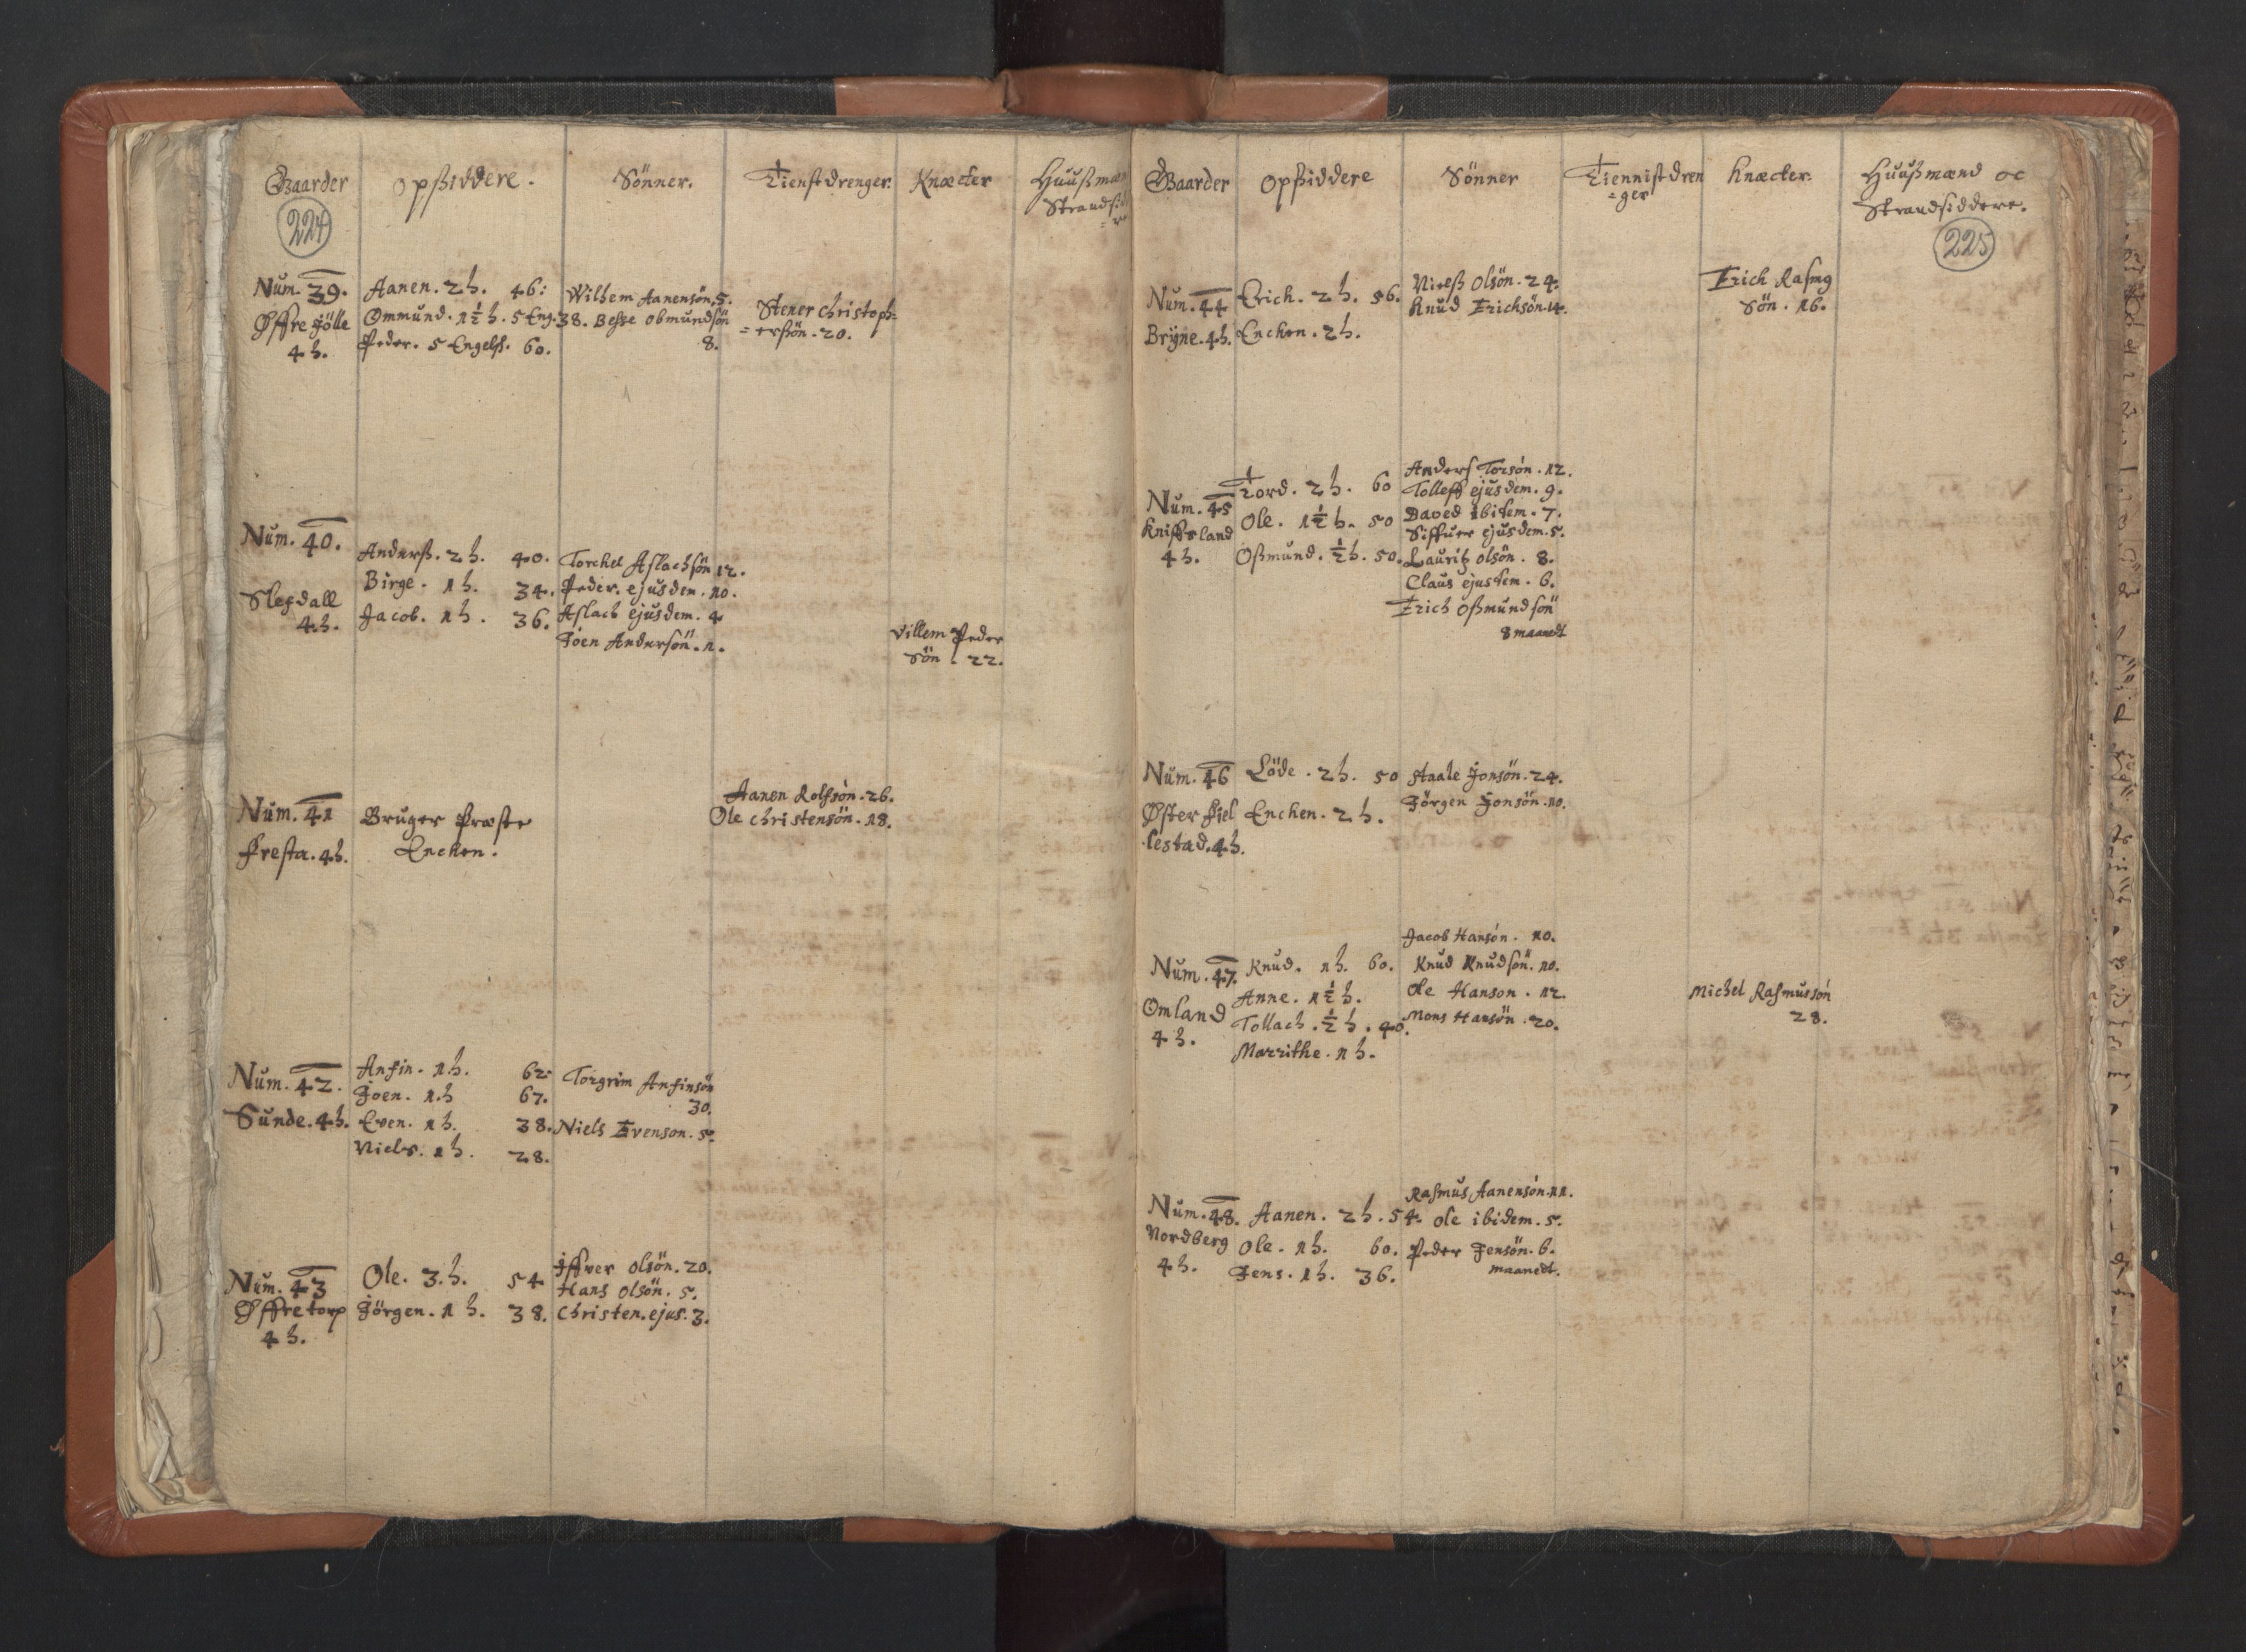 Gaarder
opsiddere.
Sönner.
Tienstdrenger.
Knæcter
Huusmæn
Strandsid
224
Num. 39.
Øffre Jölle
4 h.
Aanen. 2 h. 46:
Ommund. 1½ h. 5 Eng. 38.
Peder. 5 Engels. 60.
Wilhem Aanensön. 5.
Besse obmundsön
8.
Stener Christoph=
=ersön. 20.
Num. 40.
Slegdall
4 h.
Anderss. 2 h. 40.
Birge. 1 h. 34.
Jacob. 1 h. 36.
Torchel Aslachsön 12.
Peder. ejusdem. 10.
Aslach ejusdem. 4
Joen Andersön. 1.
Villem Peder
sön. 22.
Num. 41
Fresta. 4 h.
Bruger Præste
Enchen.
Aanen Rolfsön. 26.
Ole Christensön. 18.
Num. 42.
Sunde. 4 h.
Anfin. 1 h. 62:
Joen. 1 h 67.
Even. 1 h. 38.
Niels. 1 h. 28.
Torgrim Anfinsön
30.
Niels Evenson. 5.
Num. 43
Øffretorp
4 h.
Ole. 3. h. 54
Jörgen. 1 h. 38.
Iffver olsön. 20.
Hans olsön. 5.
Christen. ejus. 3.
Gaarder
opsiddere
Sönner
Tiennistdren
=ger
Knæcter.
Huusmænd oc
Strandsiddere.
225
Num. 44
Brÿne. 4 h.
Erich. 2 h. 56.
Enchen. 2 h.
Niels olsön. 24.
Knud Erichsön. 14.
Erich Rasmus
Sön. 16.
Num. 45
Kniffsland
4 h.
Tord. 2 h. 60
Ole. 1½ h. 50
Osmund. ½ h. 50.
Anders Torsön. 12.
Tolleff ejusdem. 9.
David ibidem. 7.
Siffuer ejusdem. 5.
Lauritz olsön. 8.
Claus ejusdem. 6.
Erich Osmundsön
8 maanedt
Num. 46
Øster Fiel
lestad. 4 h.
Löde. 2 h. 50
Enchen. 2 h.
Staale Jonsön. 24.
Jörgen Jonsön. 10.
Num. 47.
Omland
4 h.
Knud. 1 h. 60.
Anne. 1½ h.
Tollach. ½ h. 40.
Marrithe. 1 h.
Jacob Hansön. 10.
Knud Knudsön. 10.
Ole Hanson. 12.
Mons Hansön. 20.
Michel Rasmussön
28.
Num. 48.
Nordberg
4 h.
Aanen. 2 h. 54.
Ole. 1 h. 60.
Jens. 1 h. 36.
Rasmus Aanensön. 11.
Ole ibidem. 5.
Peder Jensön. 6.
maanedt.